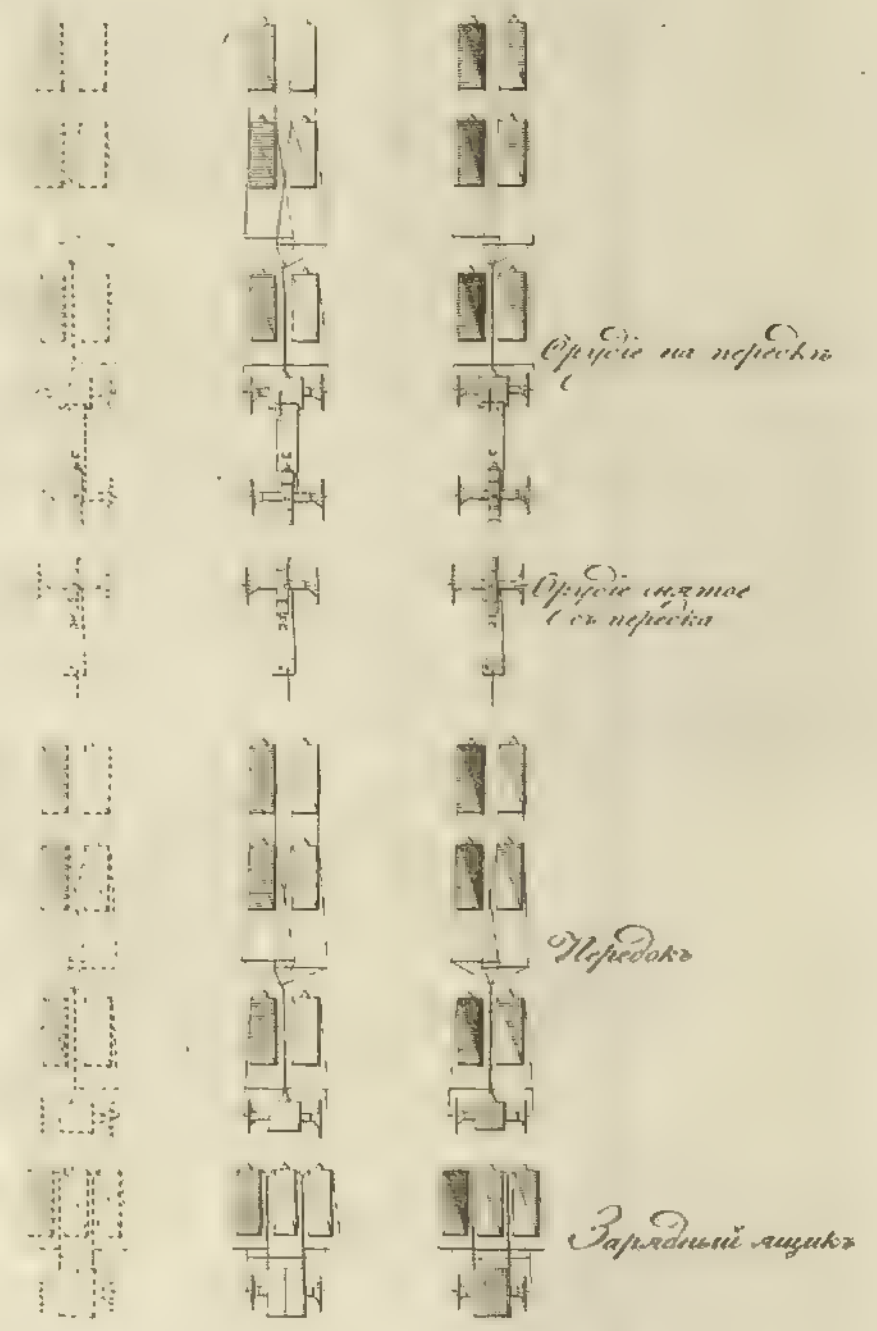 Орудіе на передкѣ
Орудіе снятое
съ передка
Передокъ
Зарядный ящикъ